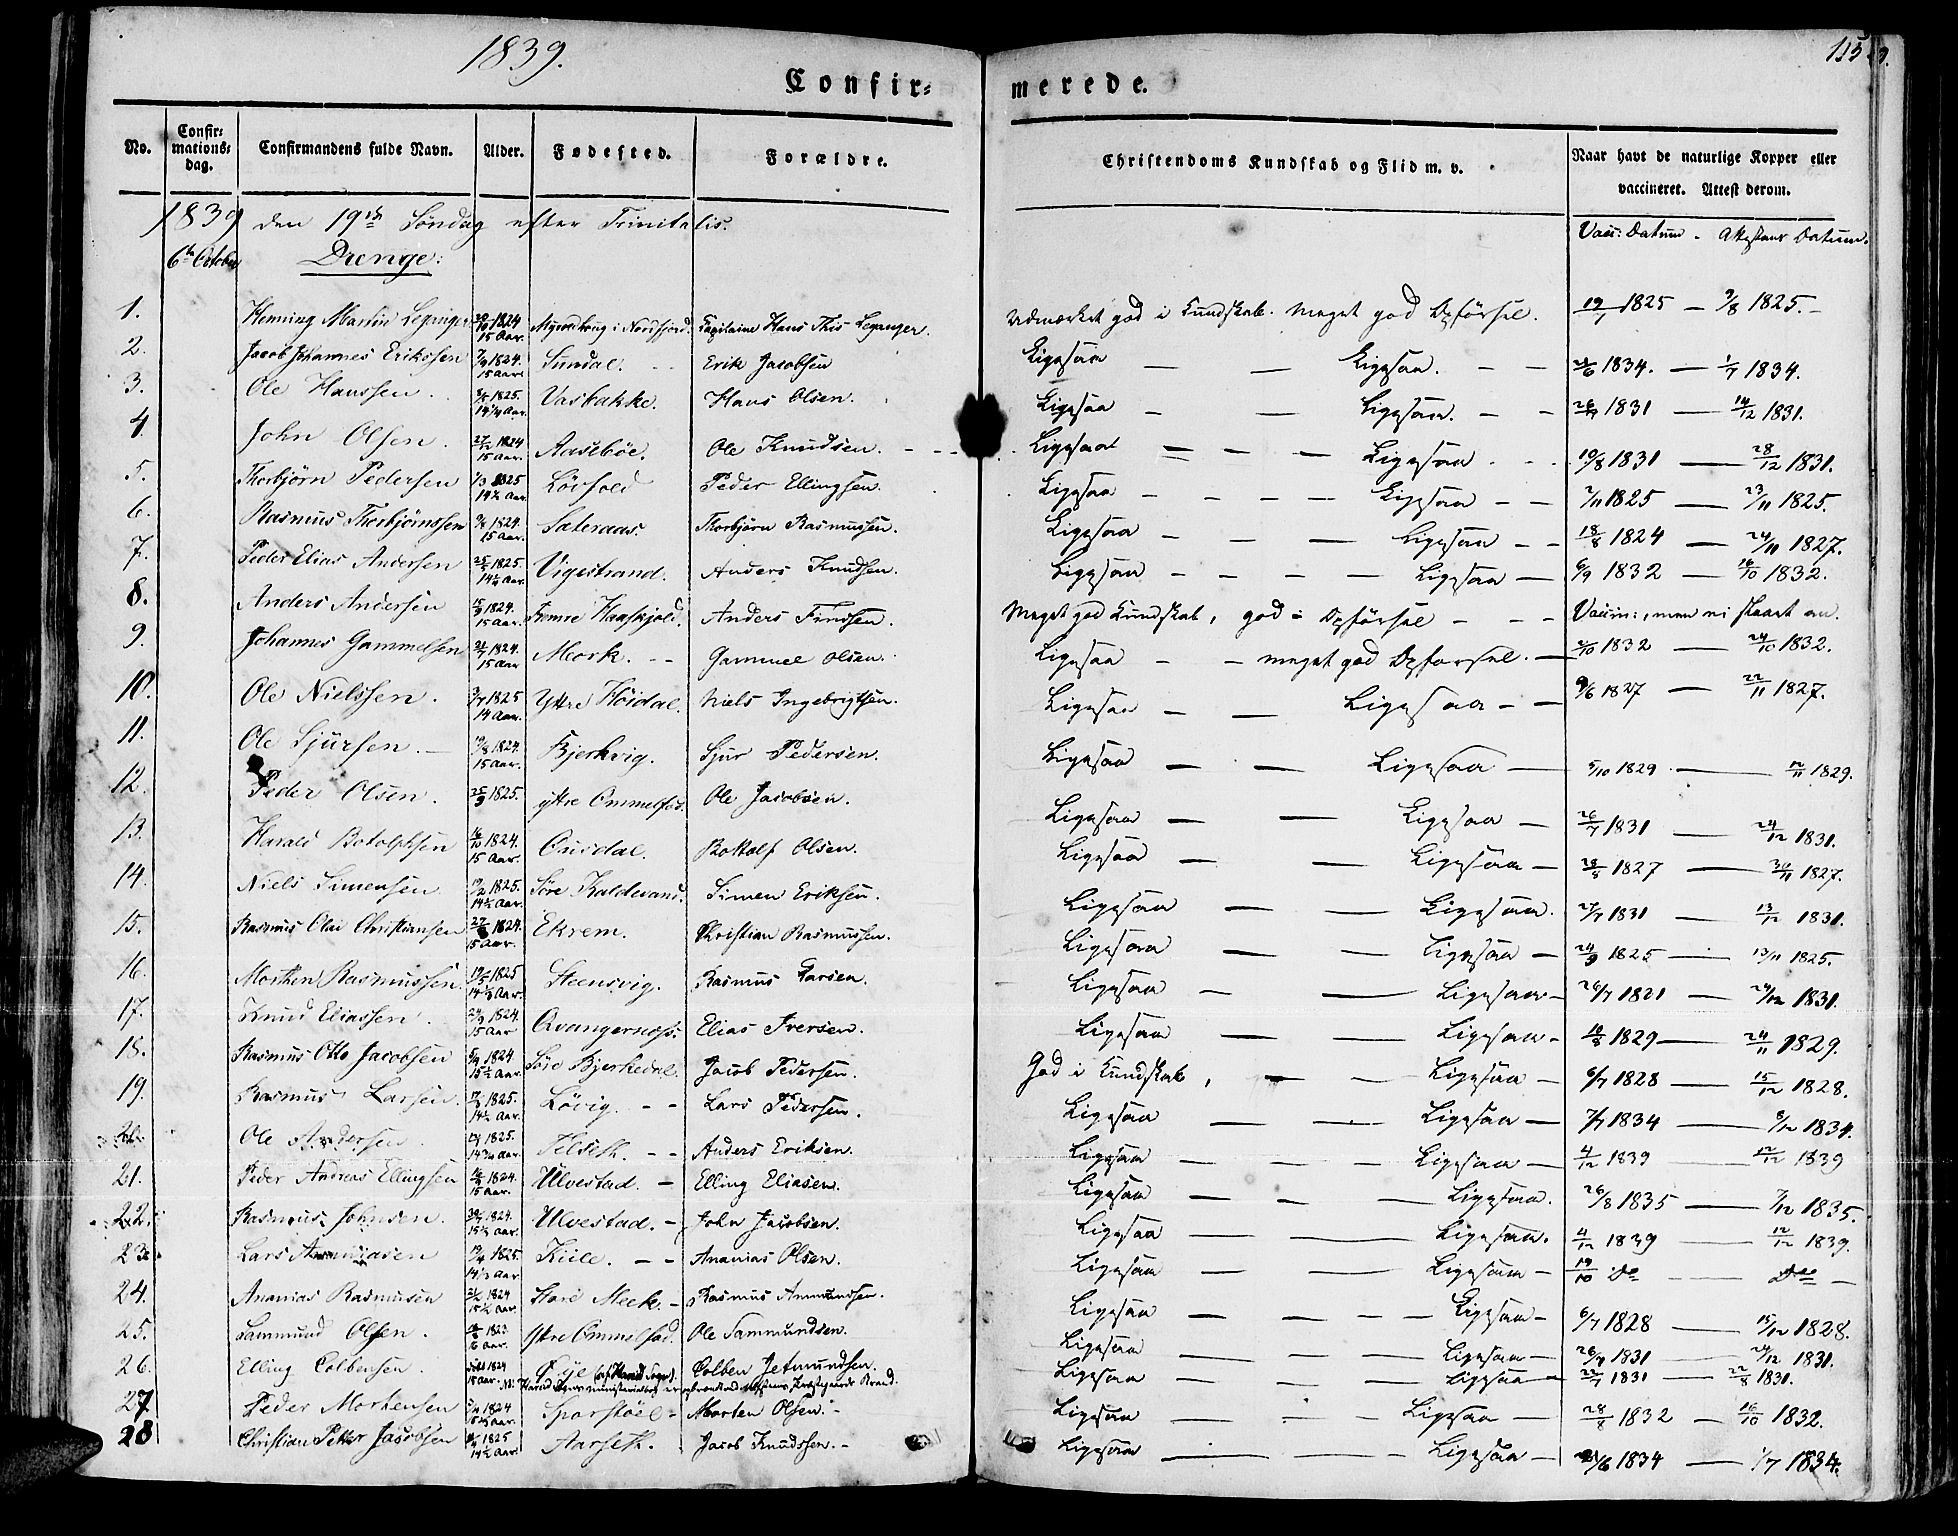 1839.
115
Confir=
merede.
No.
Confir=
mations=
dag.
Confirmandens fulde Navn.
Alder.
Fødested.
Forældre.
Christendoms Kundskab og Flid m. v.
Naar havt de naturlige Kopper eller
vaccineret. Attest derom.
1839 den 19de Søndag efter Trinitatis.
6te October Drenge:
Vacc: Datum - Attestens Datum.
1. Henning Martin Leganger 1824 15 Aar. i Nordfjord. Capitaine Hans Leganger. Udmærket god i Kundskab. Meget god Opførsel. 19/7 1825 - 9/8 1825.
2. Jacob Johannes Erikssen 7/9 1824. 15 Aar Sundal. Erik Jacobsen Ligesaa — — Ligesaa. — 1834. — 1/7 1834.
3. Ole Hanssen. 1825. 14 1/4 Aar. Vasbakke. Hans Olsen. Ligesaa — — Ligesaa. — 1831 — 14/12 1831.
4. John Olsen. 27/12 1824 15 Aar. Aasebøe. Ole Knudsen. Ligesaa — — Ligesaa 10/8 1831 — 28/12 1831.
5. Thorbjörn Pedersen 1/3 1825 Aar Løvfold Peder Ellingsen. Ligesaa — — Ligesaa — 7/11 1825 — 23/11 1825.
6. Rasmus Thorbjörnssen 1824. 15 Aar. Sateraas. Thorbjörn Rasmussen. Ligesaa — — Ligesaa — 18/8 1824 — 24/11 1827.
7. Peder Elias Andersen 1825. Aar. Vigestrand. Anders Knudsen. Ligesaa — — Ligesaa — 6/9 1832 — 16/10 1832.
8. Anders Andersen 15/9 1824. 15 Aar. Anders Findsen. Meget god Kundskab, god i Opförsel — Vaccin:, men ei
9. Johannes Gammelsen 1824. 15 Aar Mork. Gammel Olsen. Ligesaa — meget god Opførsel. — 1832 — 24/10 1832.
10. Ole Nielssen. 1825 14 Aar. Yttre Höidal. Niels Ingebrigtsen. Ligesaa — — Ligesaa — 9/6 1827 — 22/11 1827.
11. Ole Sjursen. 19/8 1824. 15 Aar. Bjerkvig. Sjur Pedersen. Ligesaa — — Ligesaa — 5/10 1829 — 12/11 1829.
12. Peder Olsen. 25/9 1825. Yttre Ommelfod. Ole Jacobsen. Ligesaa — — Ligesaa — 26/7 1831 — 24/12 1831.
13. Harald Botolphsen 16/10 1824. 15 Aar. Ousdal. Bottolf Olsen. Ligesaa — — Ligesaa — 28/8 1827 — 30/11 1827.
14. Niels Simensen 19/2 1825. 14 1/2 Aar. Søre Kaldevand. Simen Eriksen. Ligesaa — — Ligesaa. 27/7 1831 — 13/12 1831.
15. Rasmus Olai Christiansen 1824. 15 Aar. Ekrem. Christian Rasmussen. Ligesaa — — Ligesaa — 24/9 1825 — 13/11 1825.
16. Morthen Rasmussen. 19/5 1825 14 1/3 Aar. Steensvig. Rasmus Larsen. Ligesaa — — Ligesaa — 26/7 1821 — 24/12 1831.
17. Knud Eliassen. 24/9 1824. 15 Aar Qvangernæss. Elias Iversen. Ligesaa — — Ligesaa — 18/8 1829 — 24/11 1829.
18. Rasmus Otto Jacobsen 5/4 1824. 15 1/2 Aar. Søre Bjerkedal. Jacob Pedersen. God i Kundskab, — — Ligesaa — 6/7 1828 — 15/12 1828.
19. Rasmus Larsen. 1825. 14 1/2 Aar. Løvig. Lars Pedersen. Ligesaa — — Ligesaa — 7/7 1834 — 8/12 1834.
20. Ole Andersen. 1825. Aar. Anders Eriksen. Ligesaa — — Ligesaa — 4/12 1839 — 12/12 1839
21. Peder Andreas Ellingsen 1824. 15 Aar. Ulvestad. Elling Eliasen. Ligesaa — — Ligesaa. 26/8 1835 — 7/12 1835.
22. Rasmus Johnsen. 1824. Aar. Ulvestad. John Jacobsen. Ligesaa — — Ligesaa. 4/12 1839 — 12/12 1839.
23. Lars 19/4 1825. Aar Kiile. Ananias Olsen. Ligesaa — — Ligesaa — 19/10 Do — Do —
24. Ananias Rasmussen 1824 15 1/2 Aar. Store Meek. Rasmus Ammundsen. Ligesaa — — Ligesaa — 6/7 1828 — 15/12 1828.
25. Sammund Olsen. 1823. 16 Aar. Yttre Ommelfod. Ole Sammundsen. Ligesaa — — Ligesaa — 26/7 1831 — 24/12 1831.
26. Elling Colbensen. 1824 15 Aar. Colben Jetmundsen. Ligesaa — — Ligesaa — 22/7 1831 — 22/8 1831.
27 Peder Morthensen 1824 Aar. Sporstöel Morten Olsen. Ligesaa — — Ligesaa — 28/8 1832 — 16/10 1832.
28 Christian Petter Jacobsen 1825 14 1/2 Aar. Aarseth. Jacob Knudssen. Ligesaa — — Ligesaa — 1834 — 1/7 1834.